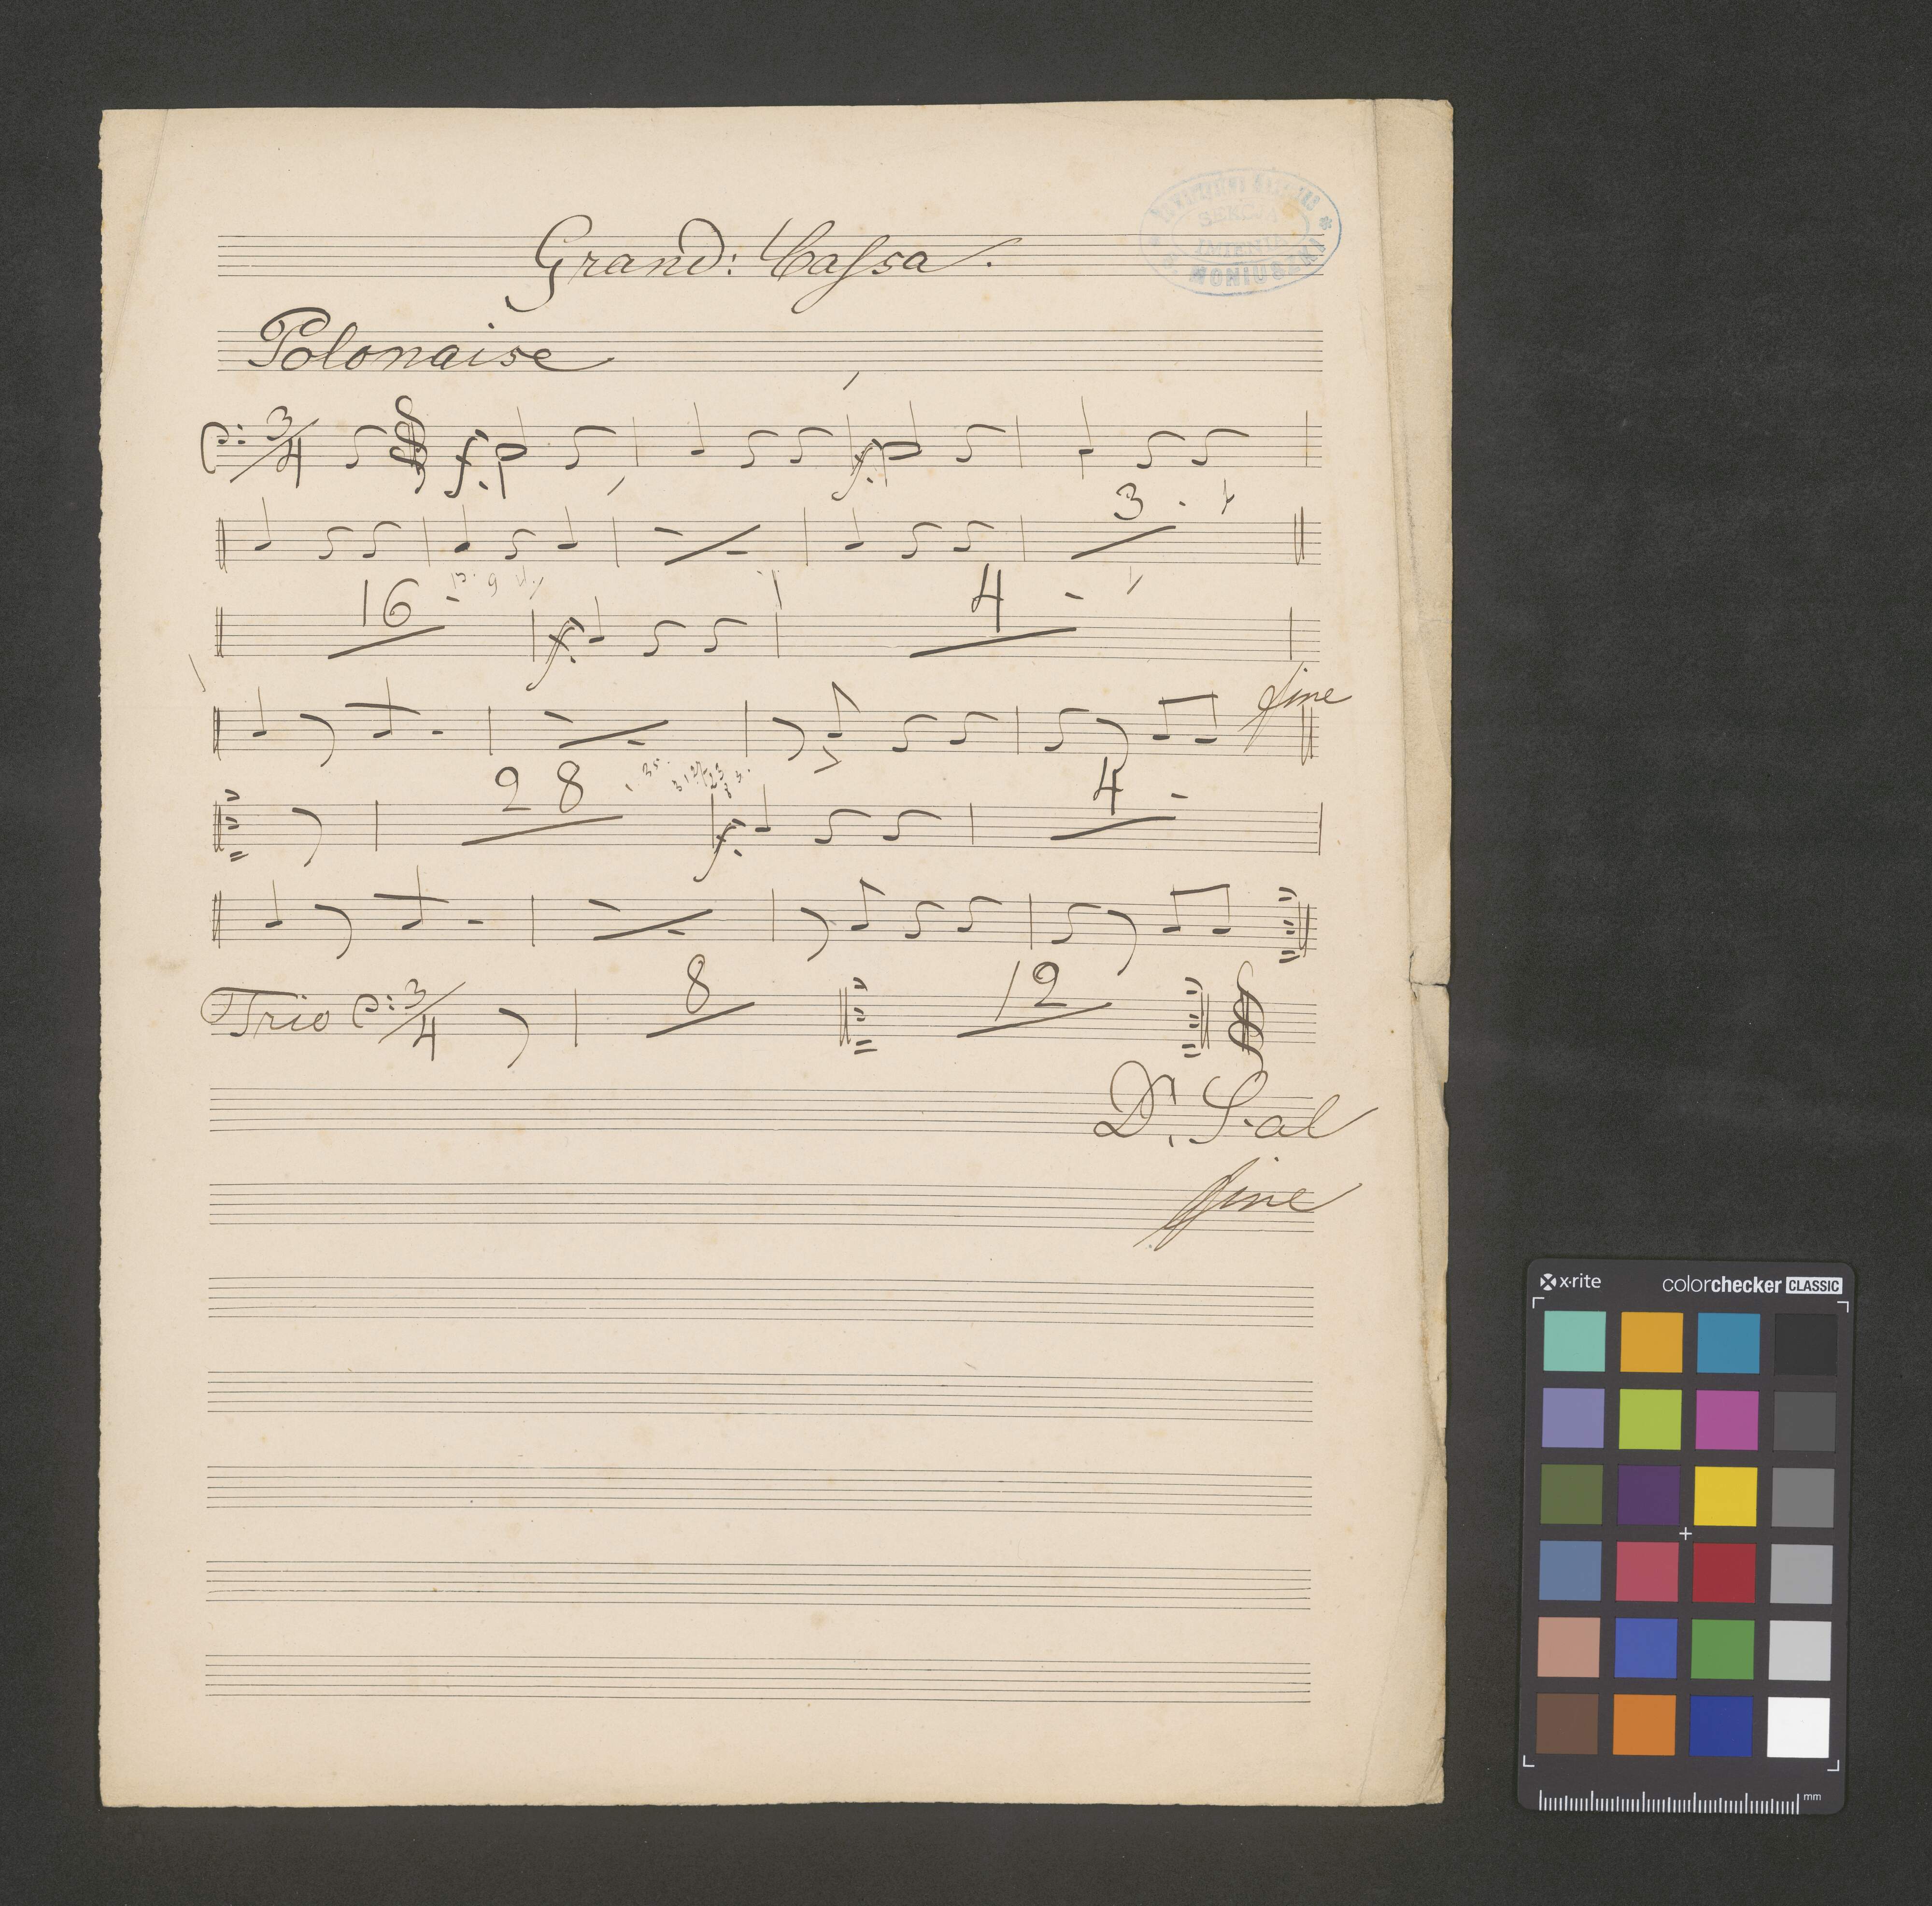 Grand: Caſsa.
SEKCJA
IMIENIA
MONIUSZKI
Polonaise
3/4 f. f.
3.
16
f. 4
fine
28 f. 4
Trio 3/4 8 12
D. S. al
fine
x·rite colorchecker CLASSIC
mm